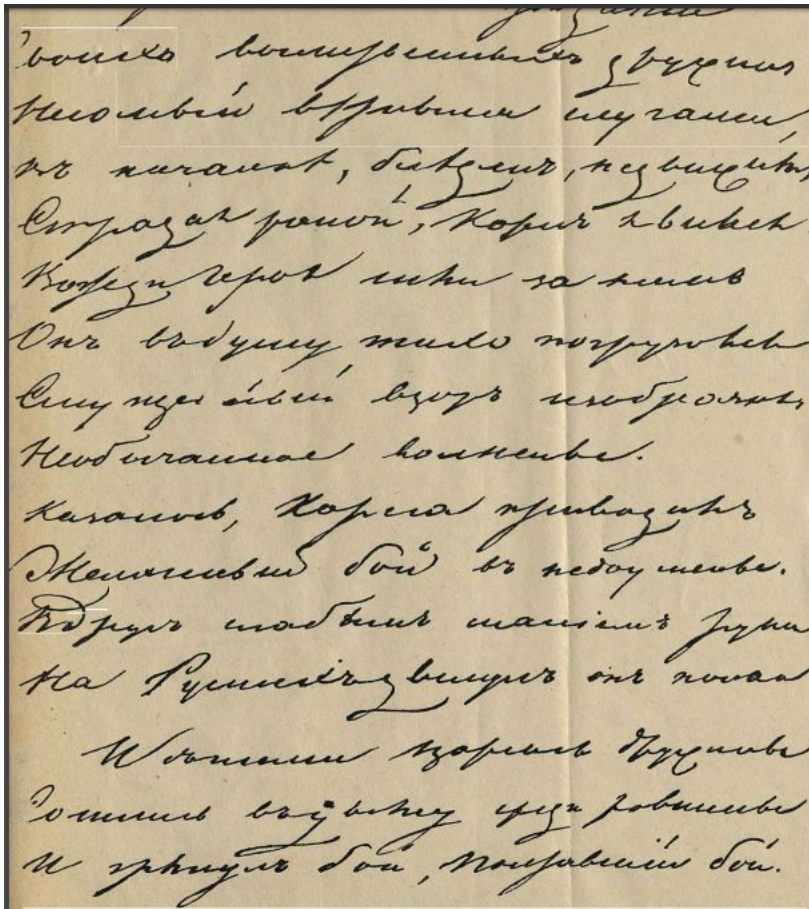 Своихъ воинственныхъ дружинъ
Несомый вѣрными слугами,
въ качалкѣ, блѣденъ, недвижимъ,
Страдая раной, Карлъ явился
Вожди героя шли за нимъ
Онъ въ думу тихо погрузился
Смущенный взоръ изобразилъ
Необычайное волненье.
Казалось, Карла приводилъ
Желанный бой въ недоуменье.
Вдругъ слабымъ маніемъ руки
На Русскихъ двинулъ онъ полки
И съ ними царскія дружины
Сошлись въ дыму среди равнины
И грянулъ бой, Полтавскій бой.